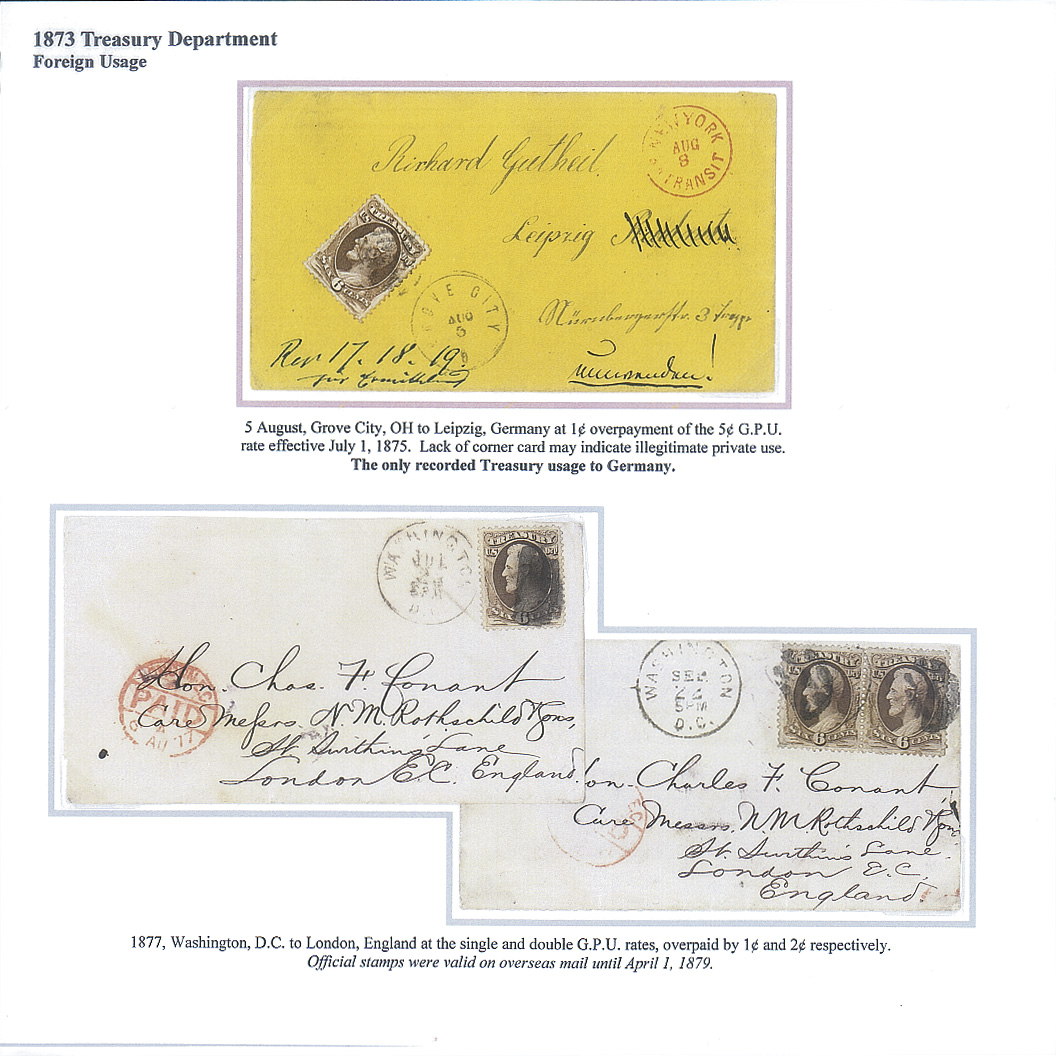 1873 Treasury Department
Foreign Usage
NEW YORK
AUG
8
TRANSIT
Richard Gutheil.
Leipzig
TREASURY
SIX 6 CENTS
GROVE CITY
AUG
5
Nürnbergerstr. 3 Trepp
Rev 17. 18. 19.
für
umwenden!
5 August, Grove City, OH to Leipzig, Germany at 1¢ overpayment of the 5¢ G.P.U.
rate effective July 1, 1875. Lack of corner card may indicate illegitimate private use.
The only recorded Treasury usage to Germany.
WASHINGTON
JUL
5PM
TREASURY
SIX 6 CENTS
Hon. Chas. F. Conant
Care Messrs. N.M. Rothschild & Sons,
St. Swithin's Lane
London E.C. England.
PAID
AU 77
WASHINGTON
SEP
5PM
D.C.
TREASURY
SIX 6 CENTS
TREASURY
SIX 6 CENTS
on. Charles F. Conant,
Care Messrs. N.M. Rothschild & Sons
St. Swithin's Lane.
London E.C.
England.
1877, Washington, D.C. to London, England at the single and double G.P.U. rates, overpaid by 1¢ and 2¢ respectively.
Official stamps were valid on overseas mail until April 1, 1879.